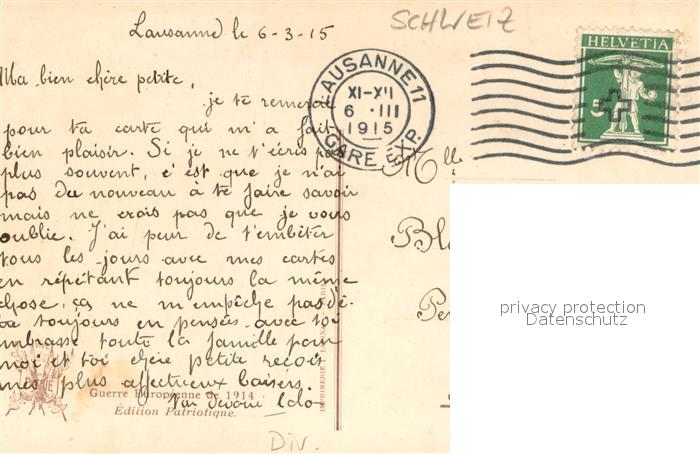 Lausanne le 6-3-15
SCHWEIZ
HELVETIA
5
LAUSANNE 11
XI-XII
6. III
1915
GARE EXP.
Ma bien chère petite,
je te remercie
pour ta carte qui m'a fait
bien plaisir. Si je ne t'écris pas
plus souvent, c'est que je n'ai
pas du nouveau à te faire savoir
mais ne crois pas que je vous
oublie. J'ai peur de t'embêter
tous les jours avec mes cartes
en répétant toujours la même
chose, ça ne m'empêche pas d'ê-
tre toujours en pensée avec toi
embrasse toute la famille pour
moi et toi chère petite reçois
mes plus affectueux baisers.
Guerre Européenne de 1914
Édition Patriotique.
Mlle
Bl
Pe
privacy protection
Datenschutz
DIV.